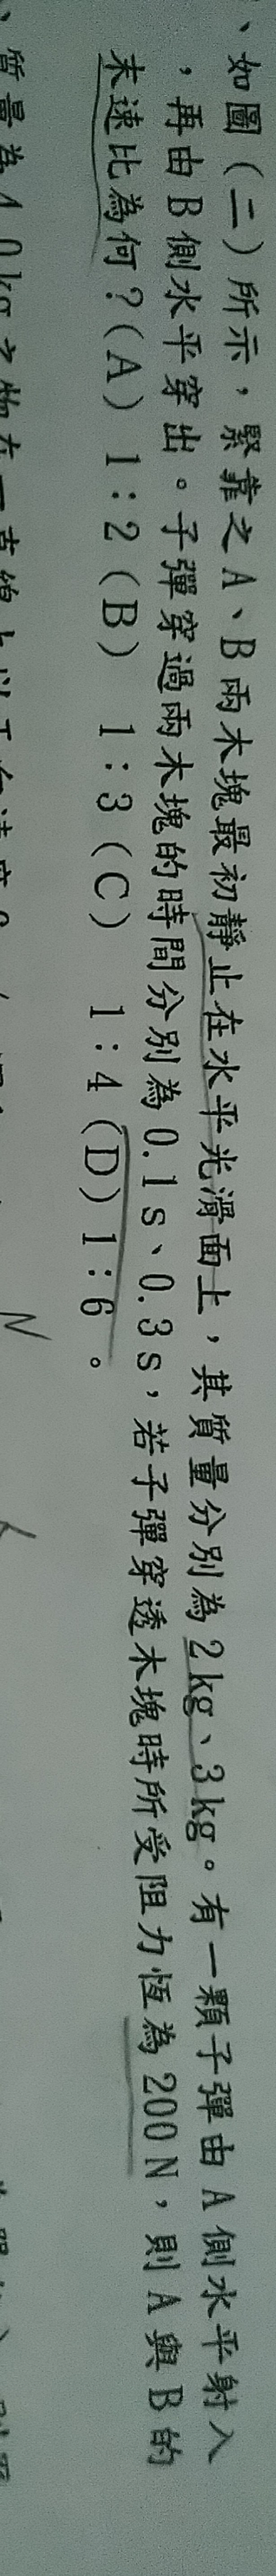 、如圖（二）所示，緊靠之A、B兩木塊最初靜止在水平光滑面上，其質量分別為2kg、3kg。有一顆子彈由A側水平射入
，再由B側水平穿出。子彈穿過兩木塊的時間分別為0.1s、0.3s，若子彈穿透木塊時所受阻力恆為200N，則A與B的
末速比為何？(A) 1:2 (B) 1:3 (C) 1:4 (D) 1:6 。
、質量為4.0kg之物在一直線上以
N